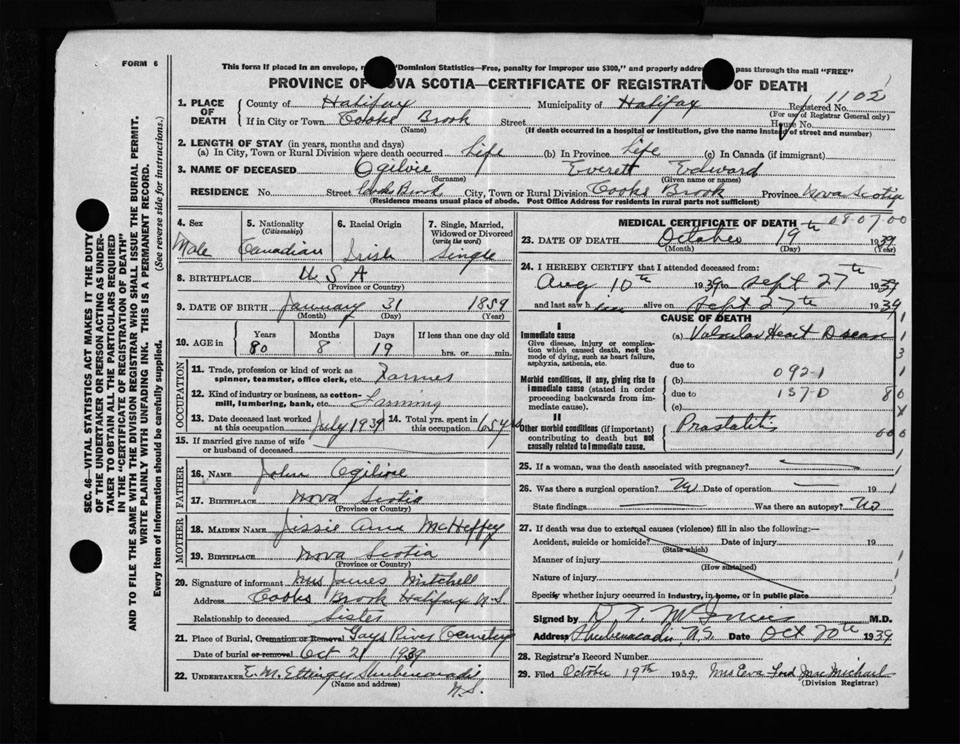 FORM 6
This form if placed in an envelope, "Dominion Statistics—Free, penalty for improper use $300," and properly addre pass through the mail "FREE"
PROVINCE OF NOVA SCOTIA—CERTIFICATE OF REGISTRATION OF DEATH
1102
1. PLACE OF DEATH
County of Halifax Municipality of Halifax Registered No.
(For use of Registrar General only)
If in City or Town Cooks Brook Street House No.
(Name) (If death occurred in a hospital or institution, give the name instead of street and number)
2. LENGTH OF STAY (in years, months and days)
(a) In City, Town or Rural Division where death occurred Life (b) In Province Life (c) In Canada (if immigrant)
3. NAME OF DECEASED Ogilvie Everett Edward
(Surname) (Given name or names)
RESIDENCE No. Street Cooks Brook City, Town or Rural Division Cooks Brook Province Nova Scotia
(Residence means usual place of abode. Post Office Address for residents in rural parts not sufficient)
SEC. 46—VITAL STATISTICS ACT MAKES IT THE DUTY
OF THE UNDERTAKER OR PERSON ACTING AS UNDER-
TAKER TO OBTAIN ALL THE PARTICULARS REQUIRED
IN THE "CERTIFICATE OF REGISTRATION OF DEATH"
AND TO FILE THE SAME WITH THE DIVISION REGISTRAR WHO SHALL ISSUE THE BURIAL PERMIT.
WRITE PLAINLY WITH UNFADING INK. THIS IS A PERMANENT RECORD.
Every item of information should be carefully supplied. (See reverse side for instructions.)
4. Sex
Male
5. Nationality
(Citizenship)
Canadian
6. Racial Origin
Irish
7. Single, Married,
Widowed or Divorced
(write the word)
Single
8. BIRTHPLACE U.S.A
(Province or Country)
9. DATE OF BIRTH January 31 1859
(Month) (Day) (Year)
10. AGE in
Years Months Days If less than one day old
80 8 19 hrs. or min.
OCCUPATION
11. Trade, profession or kind of work as
spinner, teamster, office clerk, etc. Farmer
12. Kind of industry or business, as cotton-
mill, lumbering, bank, etc. Farming
13. Date deceased last worked
at this occupation July 1939
14. Total yrs. spent in
this occupation 65 yrs
15. If married give name of wife
or husband of deceased
FATHER
16. NAME John Ogilvie
17. BIRTHPLACE Nova Scotia
(Province or Country)
MOTHER
18. MAIDEN NAME Jessie Ann McHeffey
19. BIRTHPLACE Nova Scotia
(Province or Country)
20. Signature of informant Mrs James Mitchell
Address Cooks Brook Halifax N.S
Relationship to deceased Sister
21. Place of Burial, Cremation or Removal Gays River Cemetery
Date of burial or removal Oct 21 1939
22. UNDERTAKER E. M. Ettinger Shubenacadie
(Name and address) N.S.
MEDICAL CERTIFICATE OF DEATH 08-07-00
23. DATE OF DEATH October 19th 1939
(Month) (Day) (Year)
24. I HEREBY CERTIFY that I attended deceased from:
Aug 10th 1939 to Sept 27th 1939
and last saw him alive on Sept 27th 1939
CAUSE OF DEATH
I
Immediate cause
Give disease, injury or complica-
tion which caused death, not the
mode of dying, such as heart failure,
asphyxia, asthenia, etc.
(a) Valvular Heart Disease
due to
092-1
Morbid conditions, if any, giving rise to
immediate cause (stated in order
proceeding backwards from im-
mediate cause).
(b)
due to 137-0
(c)
II
Other morbid conditions (if important)
contributing to death but not
causally related to immediate cause.
Prostatitis
25. If a woman, was the death associated with pregnancy?
26. Was there a surgical operation? No Date of operation 19
State findings Was there an autopsy? No
27. If death was due to external causes (violence) fill in also the following:—
Accident, suicide or homicide? Date of injury 19
(State which)
Manner of injury
(How sustained)
Nature of injury
Specify whether injury occurred in industry, in home, or in public place
Signed by M.D.
Address Shubenacadie, N.S. Date Oct 20th 1939
28. Registrar's Record Number
29. Filed October 19th 1939 Mrs Eva Ford MacMichael
(Division Registrar)